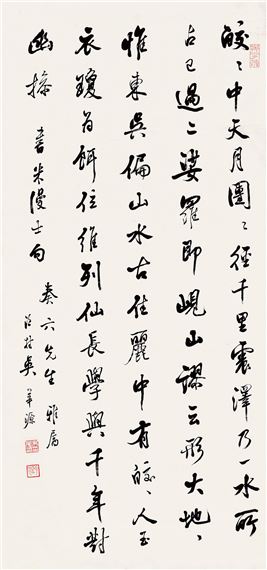 皎〻中天月團〻徑千里震澤乃一水所
占已過二娑羅即峴山謬云形大地〻
惟東吳偏山水古佳麗中有皎〻人玉
衣瓊為餌位維列仙長學與千年對
幽操 書米漫士句
奏六先生雅屬
吳華源